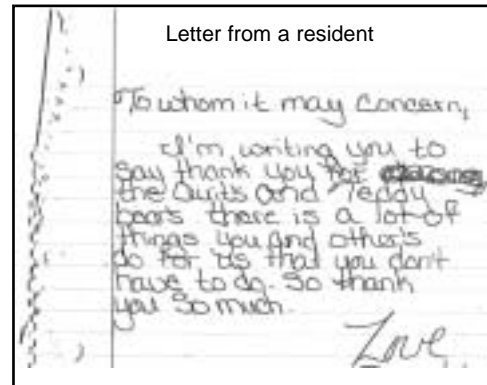 Letter from a resident
To whom it may concern,
I'm writing you to
say thank you for
the Quilts and Teddy
bears there is a lot of
things you and other's
do for us that you don't
have to do. So thank
you so much.
Love,